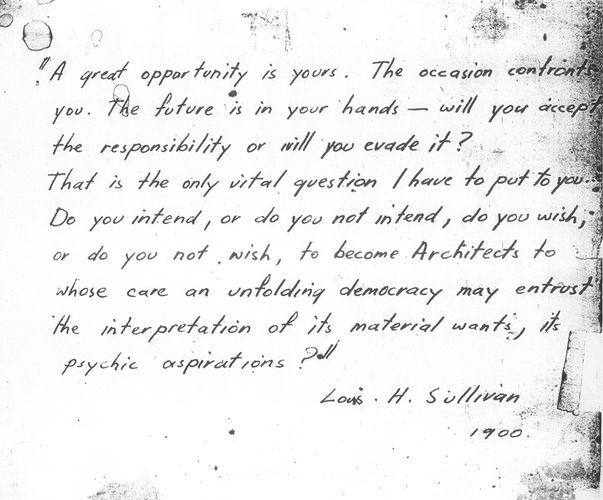 "A great opportunity is yours. The occasion confronts
you. The future is in your hands — will you accept
the responsibility or will you evade it?
That is the only vital question I have to put to you.
Do you intend, or do you not intend, do you wish,
or do you not wish, to become Architects to
whose care an unfolding democracy may entrust
the interpretation of its material wants, its
psychic aspirations?"
Louis. H. Sullivan
1900.